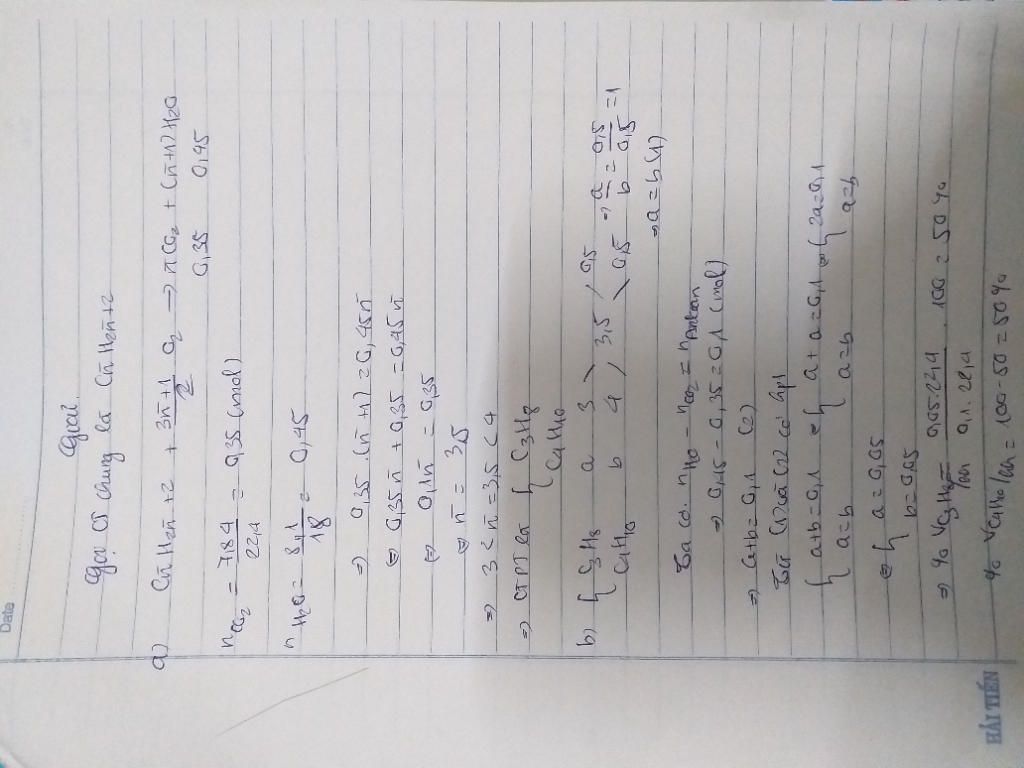 Date
Giải
Gọi CT chung là Cn̄H2n̄+2
a) Cn̄H2n̄+2 + (3n̄+1)/2 O2 → n̄CO2 + (n̄+1)H2O
0,35 0,45
nCO2 = 7,84/22,4 = 0,35 (mol)
nH2O = 8,1/18 = 0,45
⇒ 0,35.(n̄+1) = 0,45n̄
⇔ 0,35n̄ + 0,35 = 0,45n̄
⇔ 0,1n̄ = 0,35
⇔ n̄ = 3,5
⇒ 3 < n̄ = 3,5 < 4
⇒ CTPT là { C3H8
C4H10
b) { C3H8 a 3 0,5
3,5 ⇒ a/b = 0,5/0,5 = 1
C4H10 b 4 0,5
⇒ a = b (1)
Ta có: nH2O - nCO2 = nAnkan
⇒ 0,45 - 0,35 = 0,1 (mol)
⇒ a+b = 0,1 (2)
Từ (1) và (2) có hpt
{ a+b=0,1 ⇔ { a+a=0,1 ⇔ { 2a=0,1
a=b a=b a=b
⇔ { a = 0,05
b = 0,05
⇒ % VC3H8/hh = (0,05.22,4)/(0,1.22,4) . 100 = 50%
% VC4H10/hh = 100-50 = 50%
HẢI TIẾN